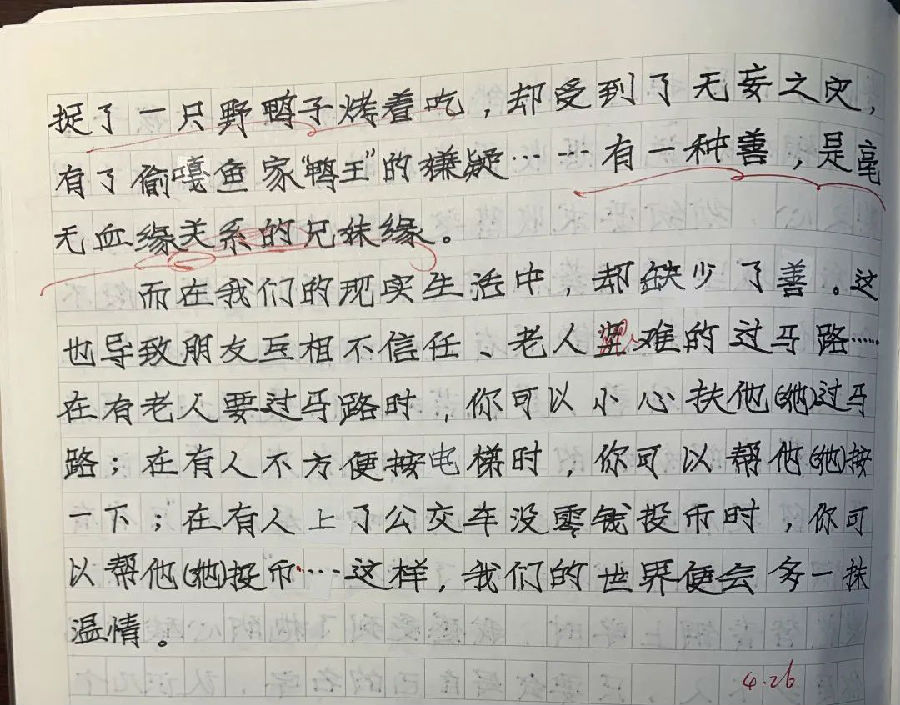 捉了一只野鸭子烤着吃，却受到了无妄之灾，
有了偷嘎鱼家“鸭王”的嫌疑……有一种善，是毫
无血缘关系的兄妹缘。
而在我们的现实生活中，却缺少了善。这
也导致朋友互相不信任、老人艰难的过马路……
在有老人要过马路时，你可以小心扶他(她)过马
路；在有人不方便按电梯时，你可以帮他(她)按
一下；在有人上了公交车没零钱投币时，你可
以帮他(她)投币……这样，我们的世界便会多一抹
温情。
4.26